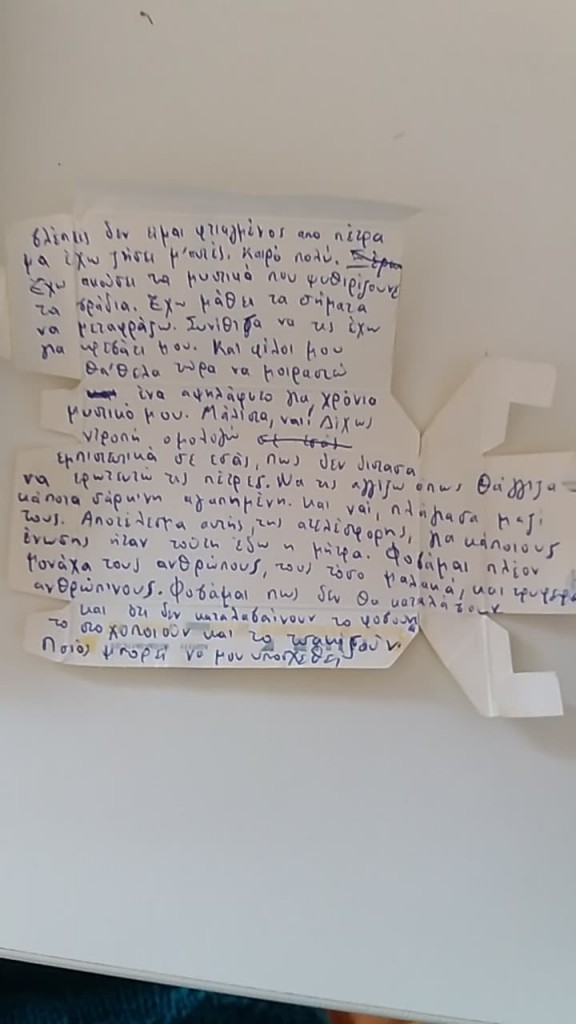 βλέπεις δεν ειμαι φτιαγμένος απο πέτρα
μα έχω ζήσει μ'αυτές. Καιρό πολύ.
Έχω ακούσει τα μυστικά που ψυθιρίζουνε
τα βράδια. Έχω μάθει τα σήματα
να μεταφράζω. Συνήθισα να τις έχω
για κρεβάτι μου. Και φίλοι μου
θα'θελα τώρα να μοιραστώ
ένα αψηλάφιτο για χρόνια
μυστικό μου. Μάλιστα, ναι! Δίχως
ντροπή ομολογώ
εμπιστευτικά σε εσάς, πως δεν δίστασα
να ερωτευτώ τις πέτρες. Να τις αγγίξω όπως θα άγγιζα
κάποια σάρκινη αγαπημένη. Και ναι, πλάγιασα μαζί
τους. Αποτέλεσμα αυτής, της ατελέσφορης, για κάποιους
ένωσης ήταν τούτη εδώ η μήτρα. Φοβάμαι πλέον
μονάχα τους ανθρώπους, τους τόσο μαλακά, και τρυφερά
ανθρώπινους. Φοβάμαι πως δεν θα καταλάβουν
και ότι δεν καταλαβαίνουν το φοβούντ
το στοχοποιούν και το τσακίζουν.
Ποιός μπορεί να μου υποσχεθεί